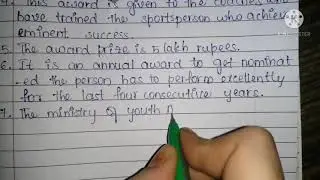 This award is given to the coaches who
have trained the sportsperson who achieve
eminent success.
5. The award prize is 5 lakh rupees.
6. It is an annual award to get nominat
-ed the person has to perform excellently
for the last four consecutive years.
7. The ministry of youth